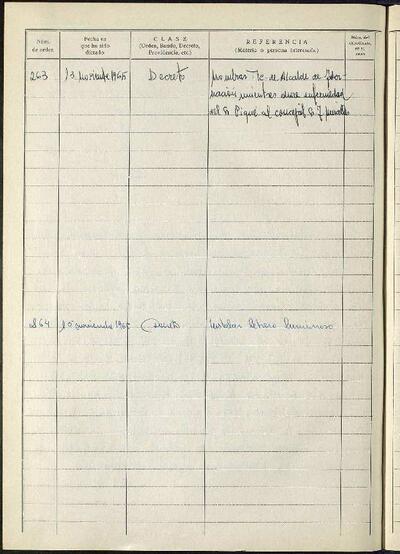 Núm. de orden
Fecha en que ha sido dictado
CLASE
(Orden, Bando, Decreto, Providencia, etc.)
REFERENCIA
(Materia o persona interesada)
263 13 noviembre 1965 Decreto nombrar Tte. de Alcalde de
mientras dure enfermedad
del Sr. Piqué al concejal Sr.
264 15 noviembre 1965 Decreto Instalar letrero luminoso